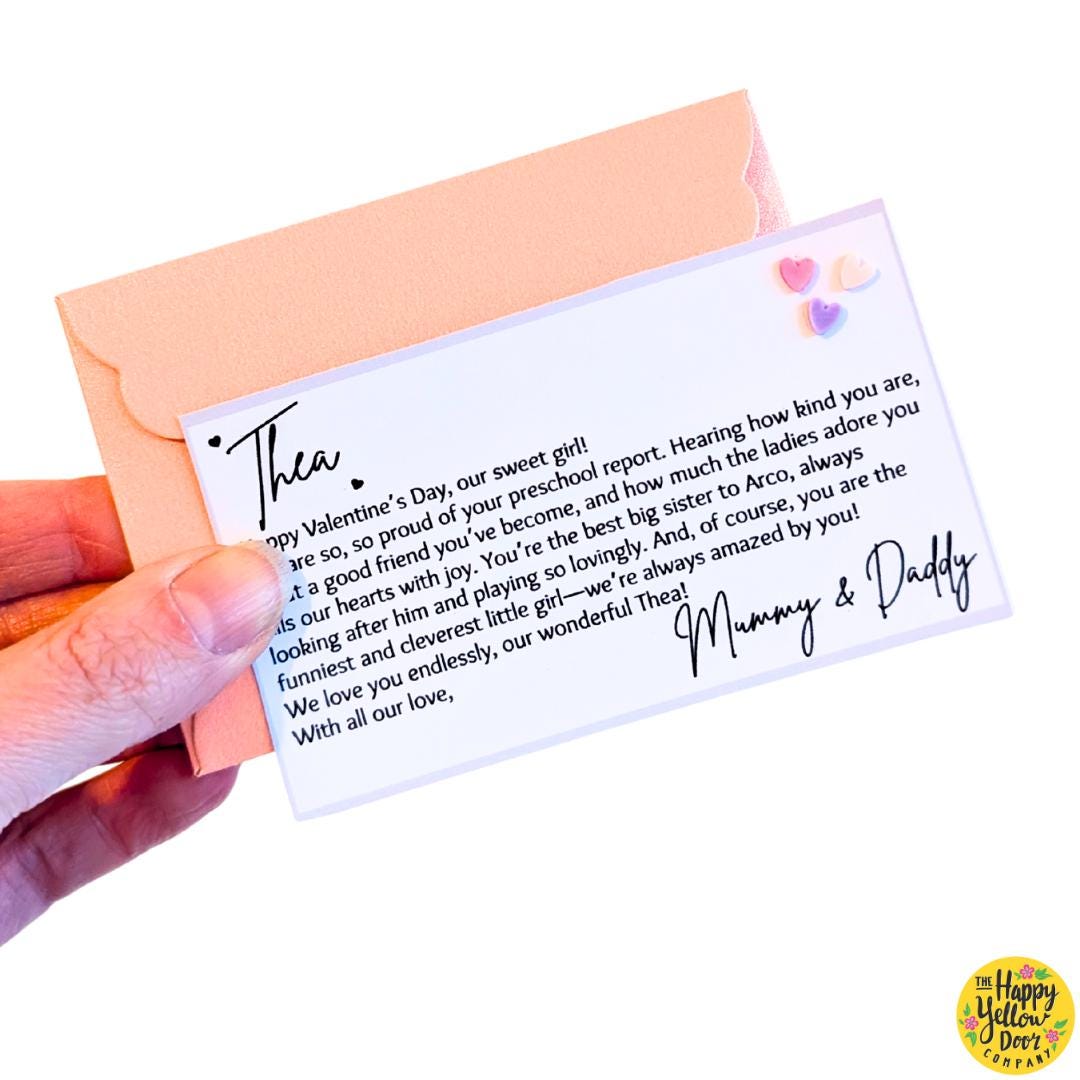 Thea
ppy Valentine's Day, our sweet girl!
are so, so proud of your preschool report. Hearing how kind you are,
t a good friend you've become, and how much the ladies adore you
ls our hearts with joy. You're the best big sister to Arco, always
looking after him and playing so lovingly. And, of course, you are the
funniest and cleverest little girl—we're always amazed by you!
We love you endlessly, our wonderful Thea!
With all our love,
Mummy & Daddy
THE
Happy
Yellow
Door
COMPANY